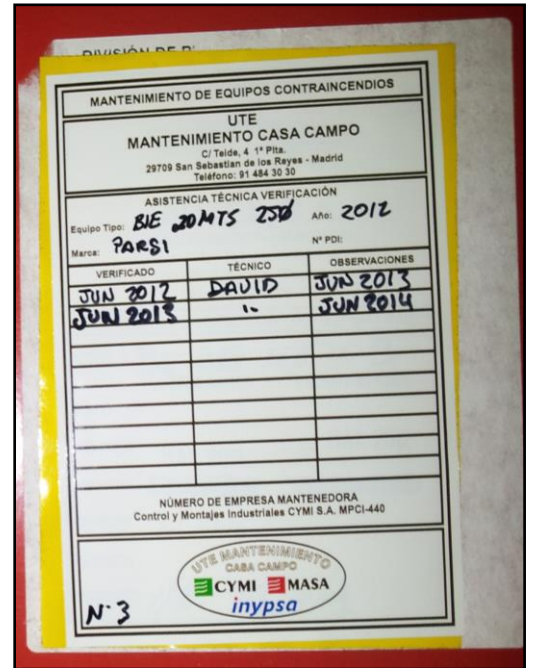 MANTENIMIENTO DE EQUIPOS CONTRAINCENDIOS
UTE
MANTENIMIENTO CASA CAMPO
C/ Teide, 4 1ª Plta.
29709 San Sebastian de los Reyes - Madrid
Teléfono: 91 484 30 30
ASISTENCIA TÉCNICA VERIFICACIÓN
Equipo Tipo: BIE 20MTS 25Ø Año: 2012
Marca: PARSI Nº PDI:
VERIFICADO TÉCNICO OBSERVACIONES
JUN 2012 DAVID JUN 2013
JUN 2013 JUN 2014
NÚMERO DE EMPRESA MANTENEDORA
Control y Montajes Industriales CYMI S.A. MPCI-440
UTE MANTENIMIENTO
CASA CAMPO
CYMI MASA
inypsa
Nº 3